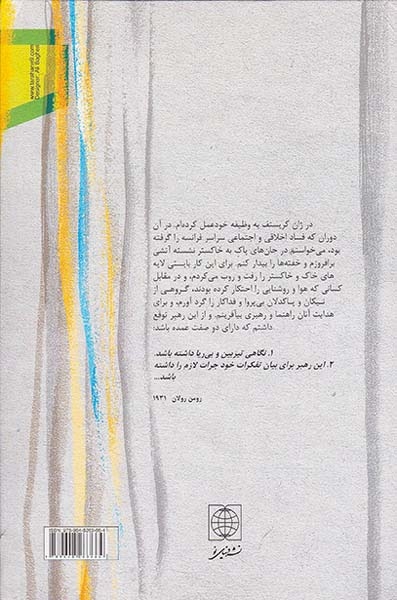 www.taraharan9.com
Designer: Ali Bagheri
در ژان کریستف به وظیفه خودعمل کرده‌ام. در آن
دوران که فساد اخلاقی و اجتماعی سراسر فرانسه را گرفته
بود، می‌خواستم در جان‌های پاک به خاکستر نشسته آتشی
برافروزم و خفته‌ها را بیدار کنم. برای این کار بایستی لایه
های خاک و خاکستر را رفت و روب می‌کردم، و در مقابل
کسانی که هوا و روشنایی را احتکار کرده بودند، گروهی از
نیکان و پاکدلان بی‌پروا و فداکار را گرد آورم، و برای
هدایت آنان راهنما و رهبری بیآفرینم. و از این رهبر توقع
داشتم که دارای دو صفت عمده باشد؛
۱. نگاهی تیزبین و بی‌ریا داشته باشد.
۲. این رهبر برای بیان تفکرات خود جرات لازم را داشته
باشد...
رومن رولان ۱۹۳۱
نشر دنیای نو